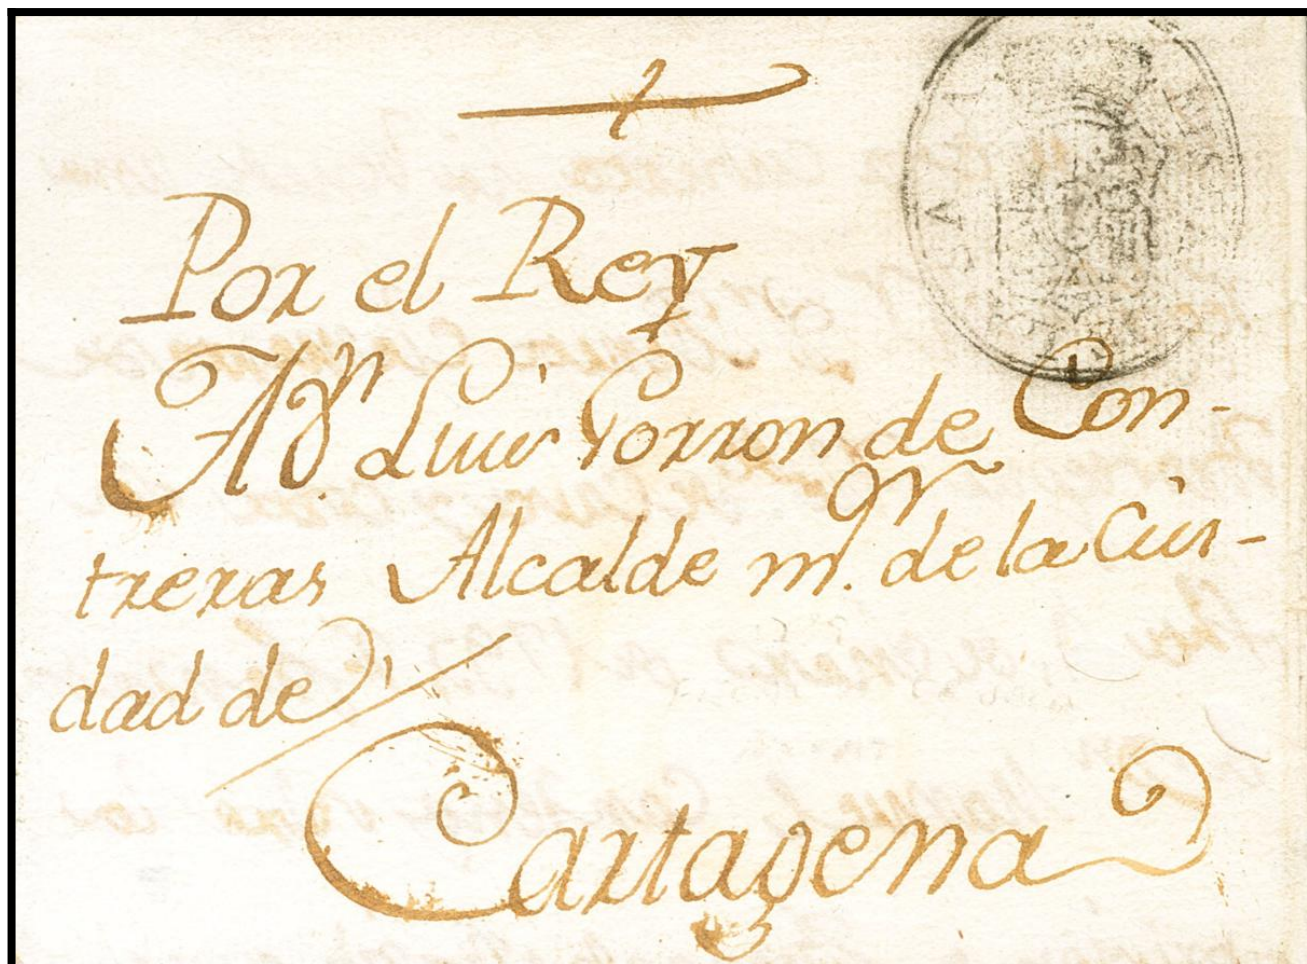 Por el Rey
A Dn Luis Porron de Con-
treras Alcalde mr. de la Ciu-
dad de
Cartagena